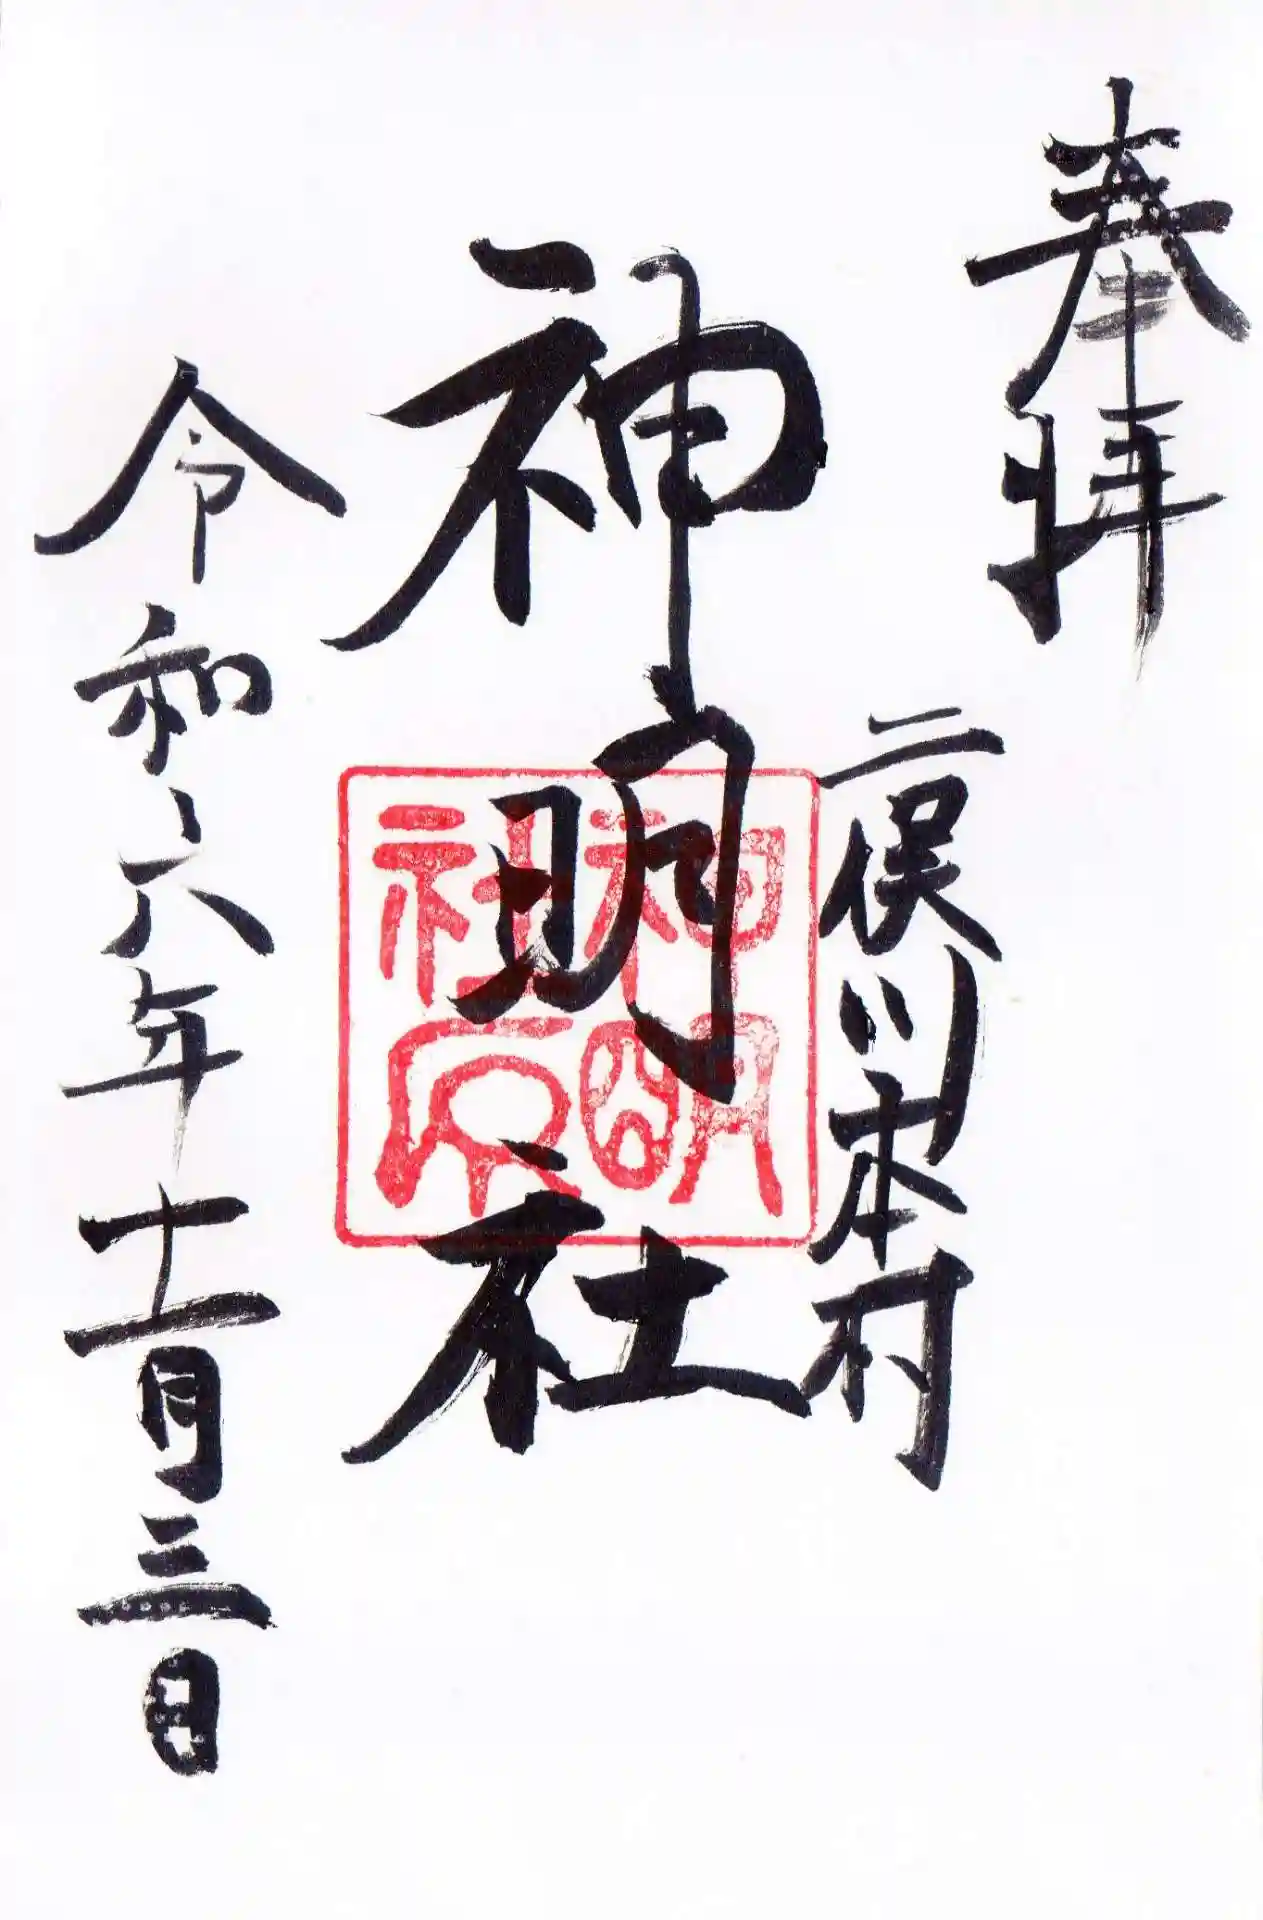 奉拝
二俣川本村
神明社
神明
社
令和六年十一月三日